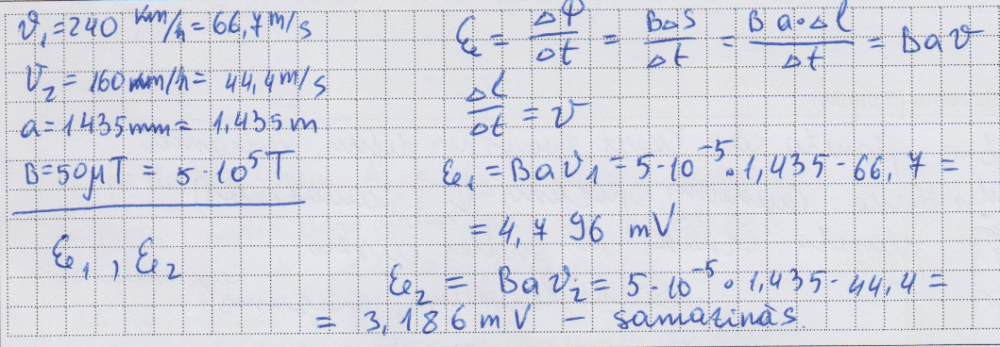 v₁=240 km/h = 66,7 m/s
v₂ = 160 km/h = 44,4 m/s
a = 1435 mm = 1,435 m
B = 50 μT = 5 · 10⁵ T
ℰe₁, ℰe₂
ℰe = ΔΦ/Δt = BΔS/Δt = B a · Δl/Δt = Bav
Δl/Δt = v
ℰe₁ = Bav₁ = 5·10⁻⁵ · 1,435 · 66,7 =
= 4,796 mV
ℰe₂ = Bav₂ = 5·10⁻⁵ · 1,435 · 44,4 =
= 3,186 mV – samazinās